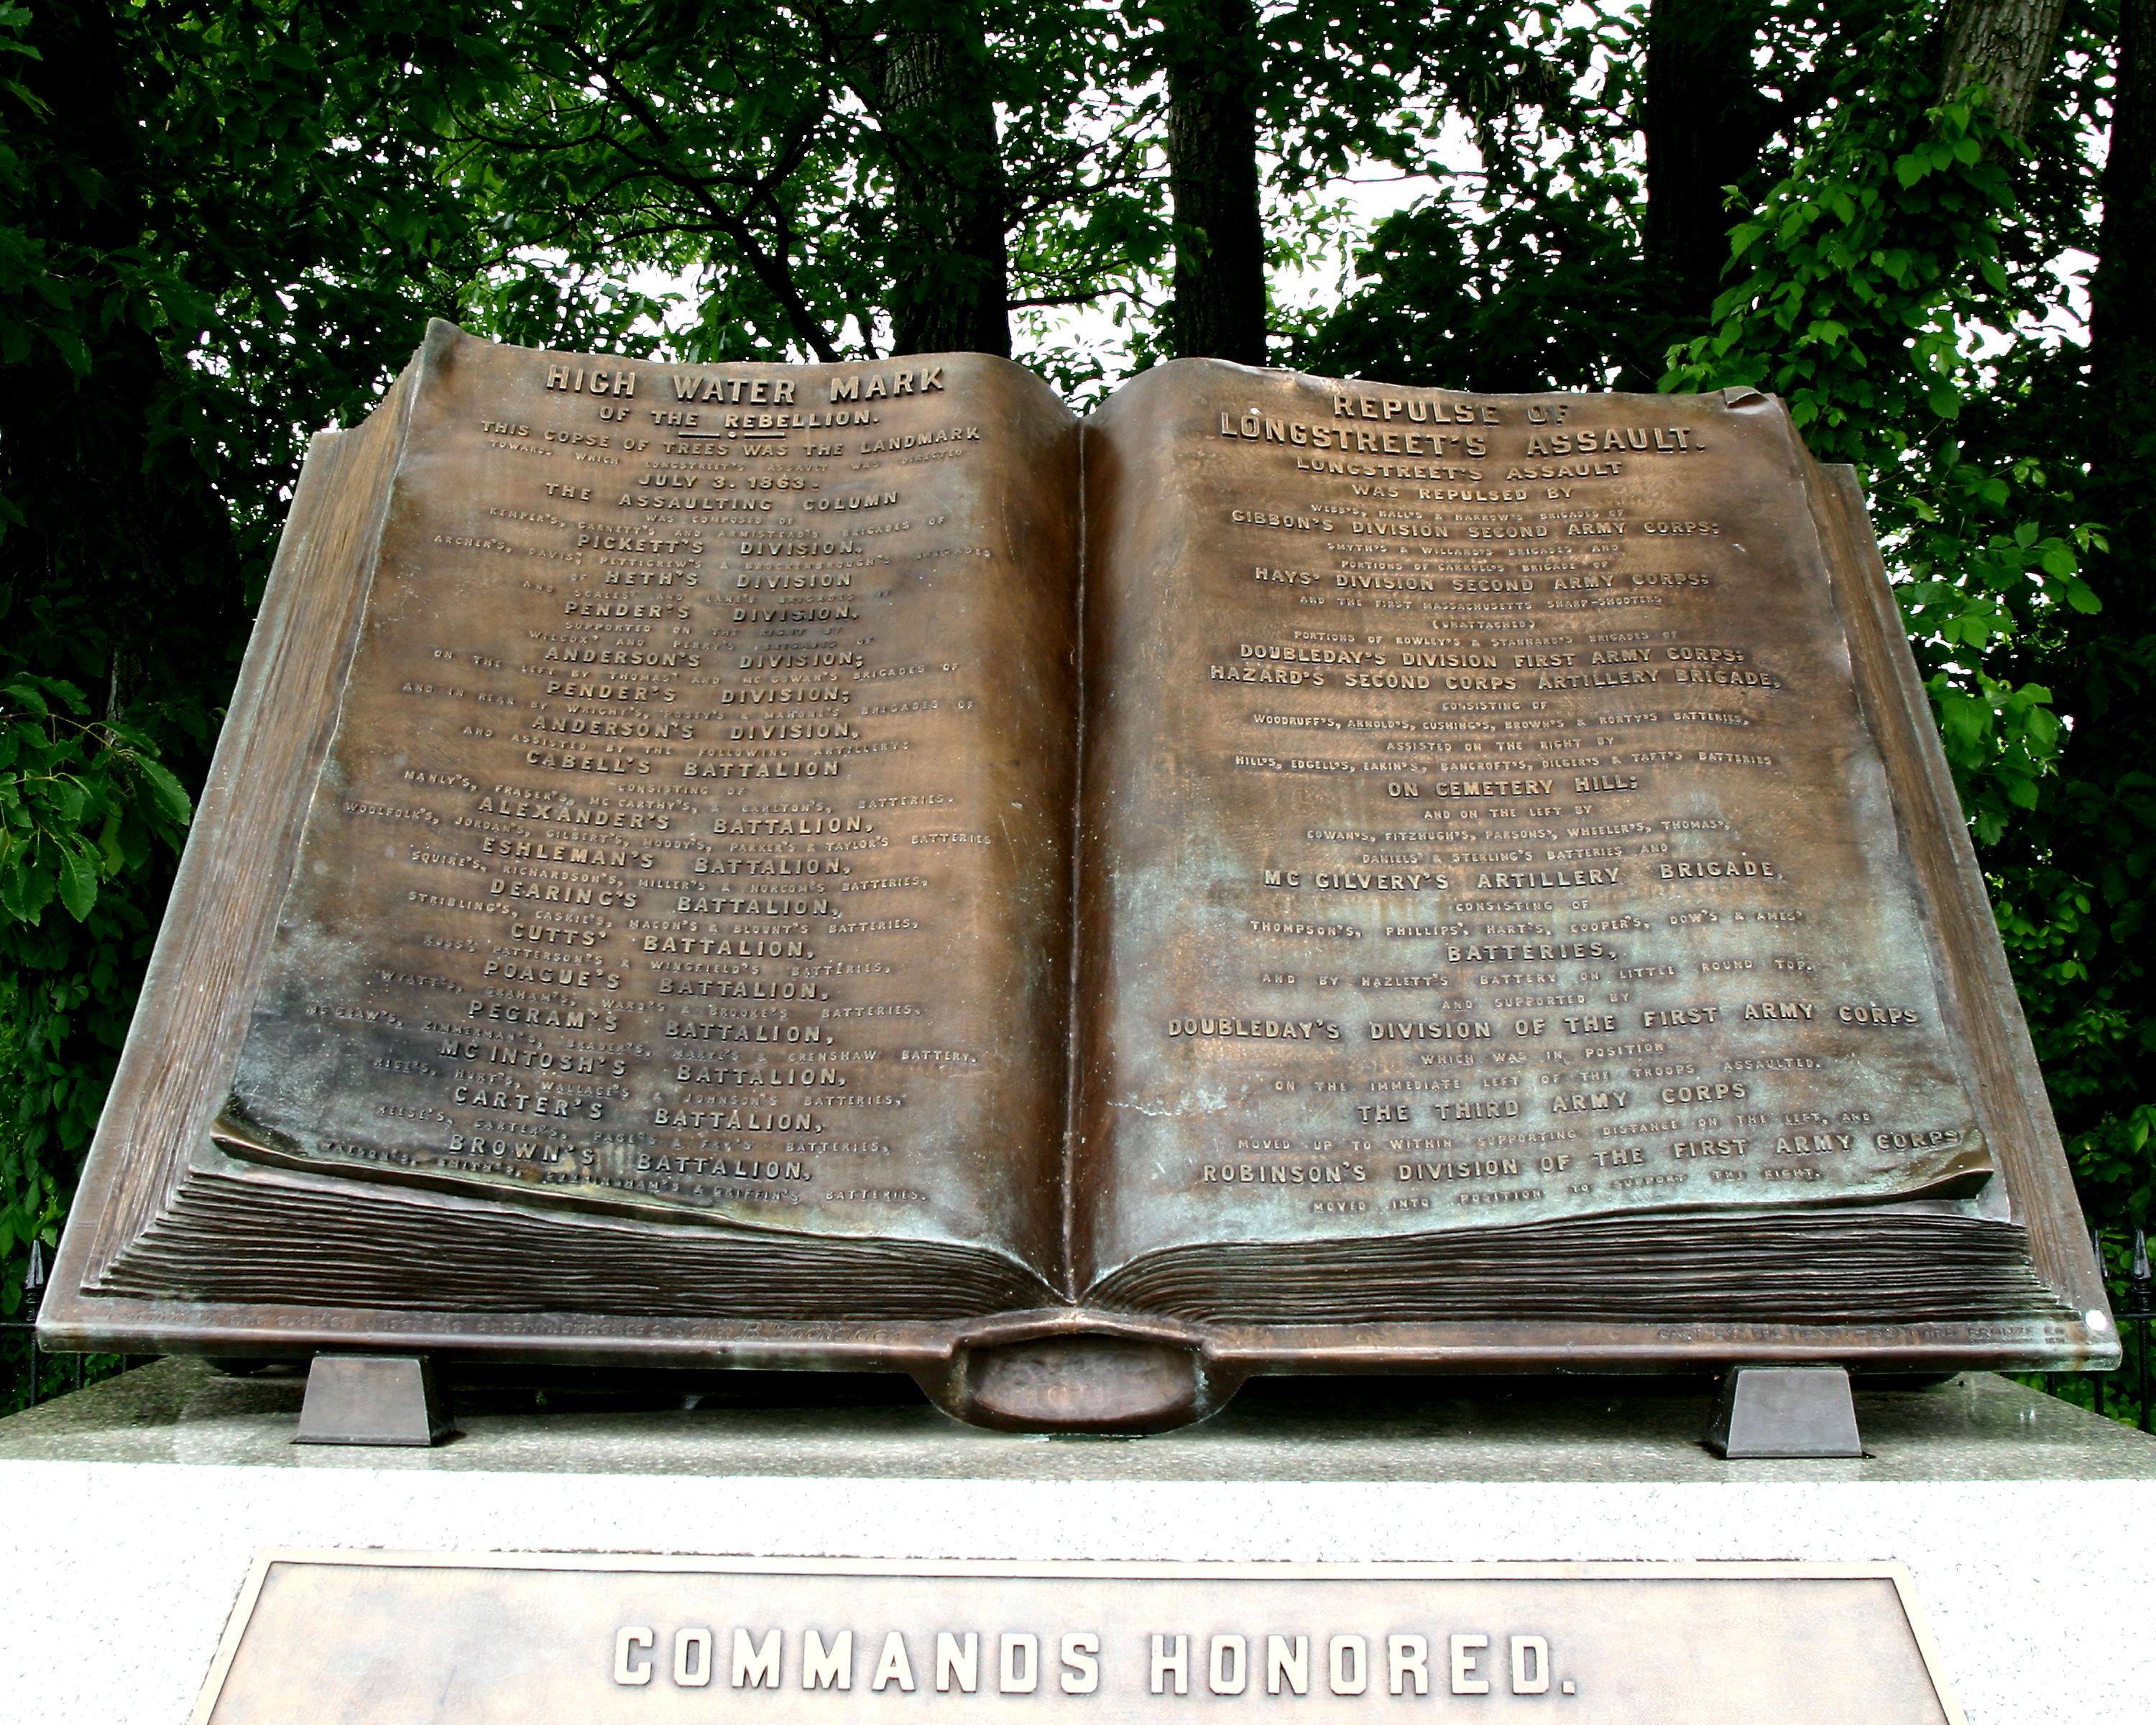 HIGH WATER MARK
OF THE REBELLION.
THIS COPSE OF TREES WAS THE LANDMARK
TOWARDS WHICH LONGSTREET'S ASSAULT WAS DIRECTED
JULY 3. 1863.
THE ASSAULTING COLUMN
WAS COMPOSED OF
KEMPER'S, GARNETT'S AND ARMISTEAD'S BRIGADES OF
PICKETT'S DIVISION,
ARCHER'S, DAVIS', PETTIGREW'S & BROCKENBROUGH'S BRIGADES
OF HETH'S DIVISION
AND SCALES' AND LANE'S BRIGADES OF
PENDER'S DIVISION.
SUPPORTED ON THE RIGHT BY
WILCOX' AND PERRY'S BRIGADES OF
ANDERSON'S DIVISION;
ON THE LEFT BY THOMAS' AND MC GOWAN'S BRIGADES OF
PENDER'S DIVISION;
AND IN REAR BY WRIGHT'S, POSEY'S & MAHONE'S BRIGADES OF
ANDERSON'S DIVISION,
AND ASSISTED BY THE FOLLOWING ARTILLERY:
CABELL'S BATTALION
CONSISTING OF
MANLY'S, FRASER'S, MC CARTHY'S, & CARLTON'S, BATTERIES.
ALEXANDER'S BATTALION,
WOOLFOLK'S, JORDAN'S, GILBERT'S, MOODY'S, PARKER'S & TAYLOR'S BATTERIES
ESHLEMAN'S BATTALION,
SQUIRE'S, RICHARDSON'S, MILLER'S & NORCOM'S BATTERIES,
DEARING'S BATTALION,
STRIBLING'S, CASKIE'S, MACON'S & BLOUNT'S BATTERIES,
CUTTS' BATTALION,
ROSS'S PATTERSON'S & WINGFIELD'S BATTERIES,
POAGUE'S BATTALION,
WYATT'S, GRAHAM'S, WARD'S & BROOKE'S BATTERIES.
PEGRAM'S BATTALION,
MC GRAW'S, ZIMMERMAN'S, BRADER'S, MARYE'S & CRENSHAW BATTERY.
MC INTOSH'S BATTALION,
RICE'S, HURT'S, WALLACE'S & JOHNSON'S BATTERIES,
CARTER'S BATTALION,
REESE'S, CARTER'S, PAGE'S & FRY'S BATTERIES,
BROWN'S BATTALION,
WATSON'S, SMITH'S, CUNNINGHAM'S & GRIFFIN'S BATTERIES.
REPULSE OF
LONGSTREET'S ASSAULT.
LONGSTREET'S ASSAULT
WAS REPULSED BY
WEBB'S, HALL'S & HARROW'S BRIGADES OF
GIBBON'S DIVISION SECOND ARMY CORPS;
SMYTH'S & WILLARD'S BRIGADES AND
PORTIONS OF CARROLL'S BRIGADE OF
HAYS' DIVISION SECOND ARMY CORPS;
AND THE FIRST MASSACHUSETTS SHARP-SHOOTERS
(UNATTACHED)
PORTIONS OF ROWLEY'S & STANNARD'S BRIGADES OF
DOUBLEDAY'S DIVISION FIRST ARMY CORPS;
HAZARD'S SECOND CORPS ARTILLERY BRIGADE,
CONSISTING OF
WOODRUFF'S, ARNOLD'S, CUSHING'S, BROWN'S & RORTY'S BATTERIES,
ASSISTED ON THE RIGHT BY
HILL'S, EDGELL'S, EAKIN'S, BANCROFT'S, DILGER'S & TAFT'S BATTERIES
ON CEMETERY HILL;
AND ON THE LEFT BY
COWAN'S, FITZHUGH'S, PARSONS', WHEELER'S, THOMAS',
DANIELS' & STERLING'S BATTERIES AND
MC GILVERY'S ARTILLERY BRIGADE,
CONSISTING OF
THOMPSON'S, PHILLIPS', HART'S, COOPER'S, DOW'S & AMES'
BATTERIES,
AND BY HAZLETT'S BATTERY ON LITTLE ROUND TOP.
AND SUPPORTED BY
DOUBLEDAY'S DIVISION OF THE FIRST ARMY CORPS
WHICH WAS IN POSITION
ON THE IMMEDIATE LEFT OF THE TROOPS ASSAULTED.
THE THIRD ARMY CORPS
MOVED UP TO WITHIN SUPPORTING DISTANCE ON THE LEFT, AND
ROBINSON'S DIVISION OF THE FIRST ARMY CORPS
MOVED INTO POSITION TO SUPPORT THE RIGHT.
COMMANDS HONORED.